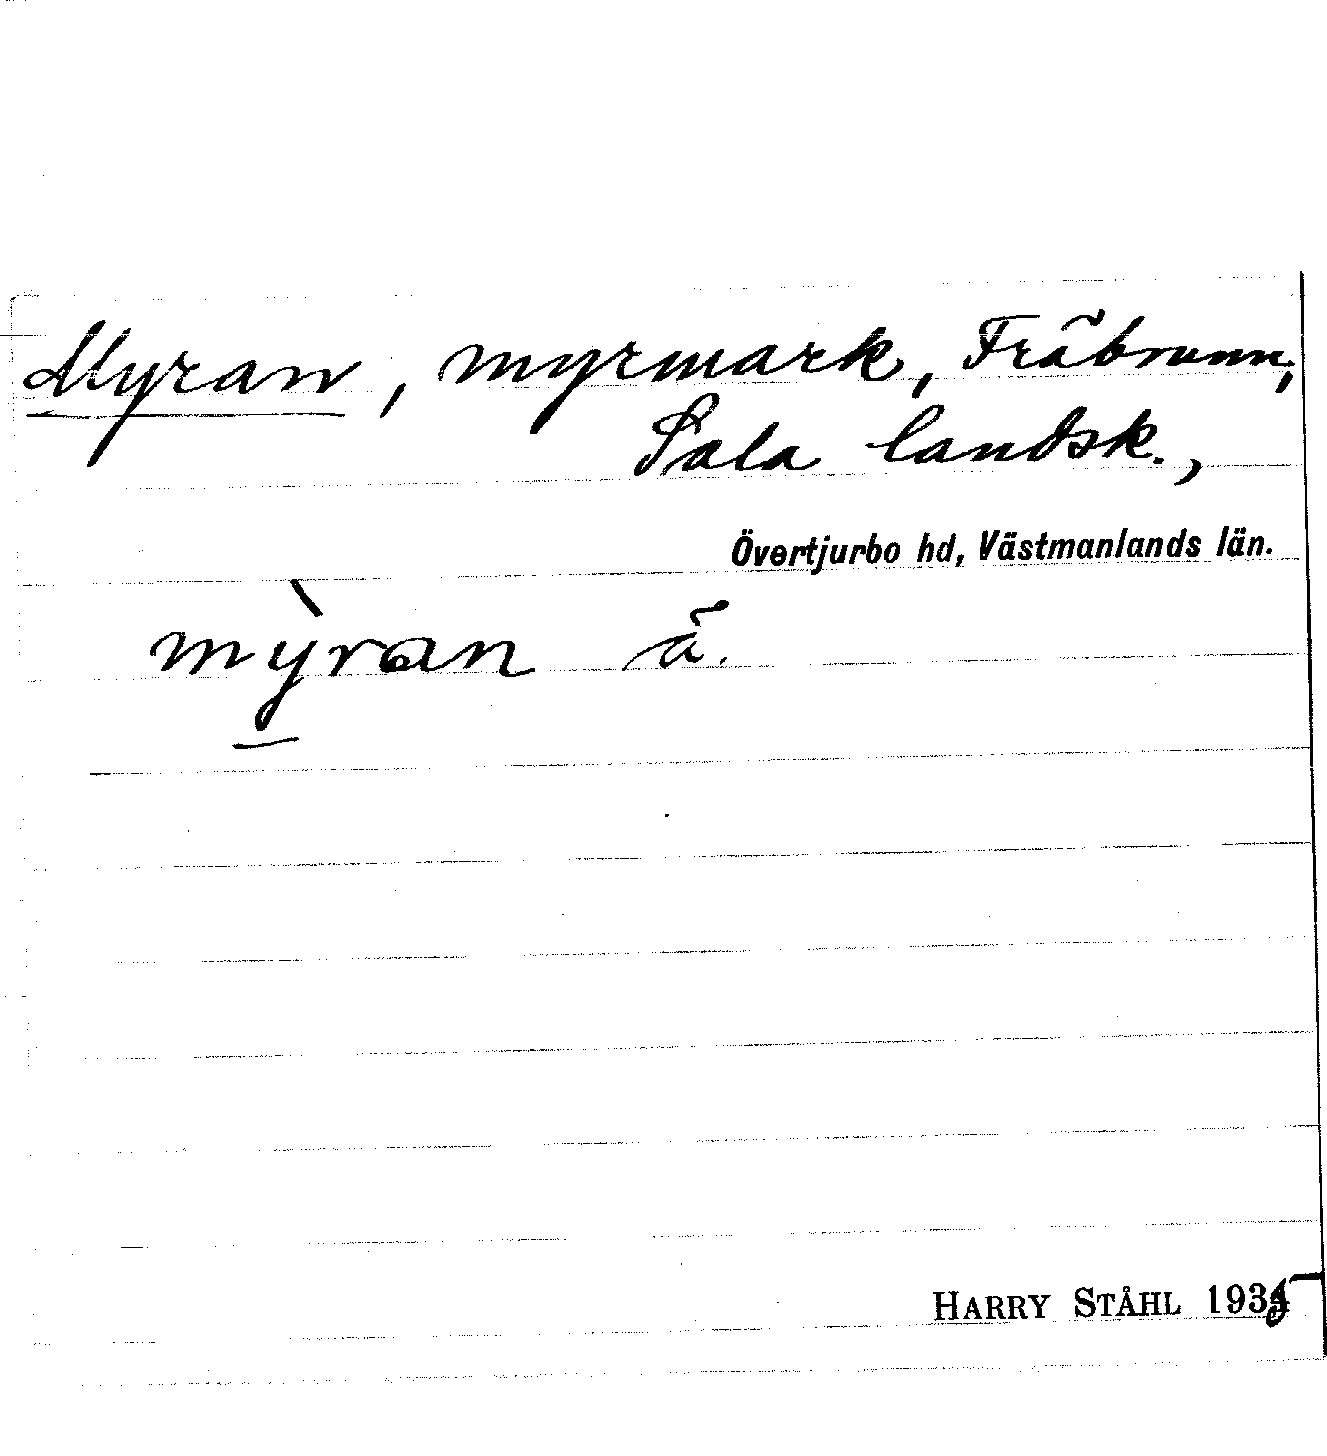 Myran, myrmark, Fräbrunn,
Sala landsk.,
Övertjurbo hd, Västmanlands län.
mỳran ä.
HARRY STÅHL 1935